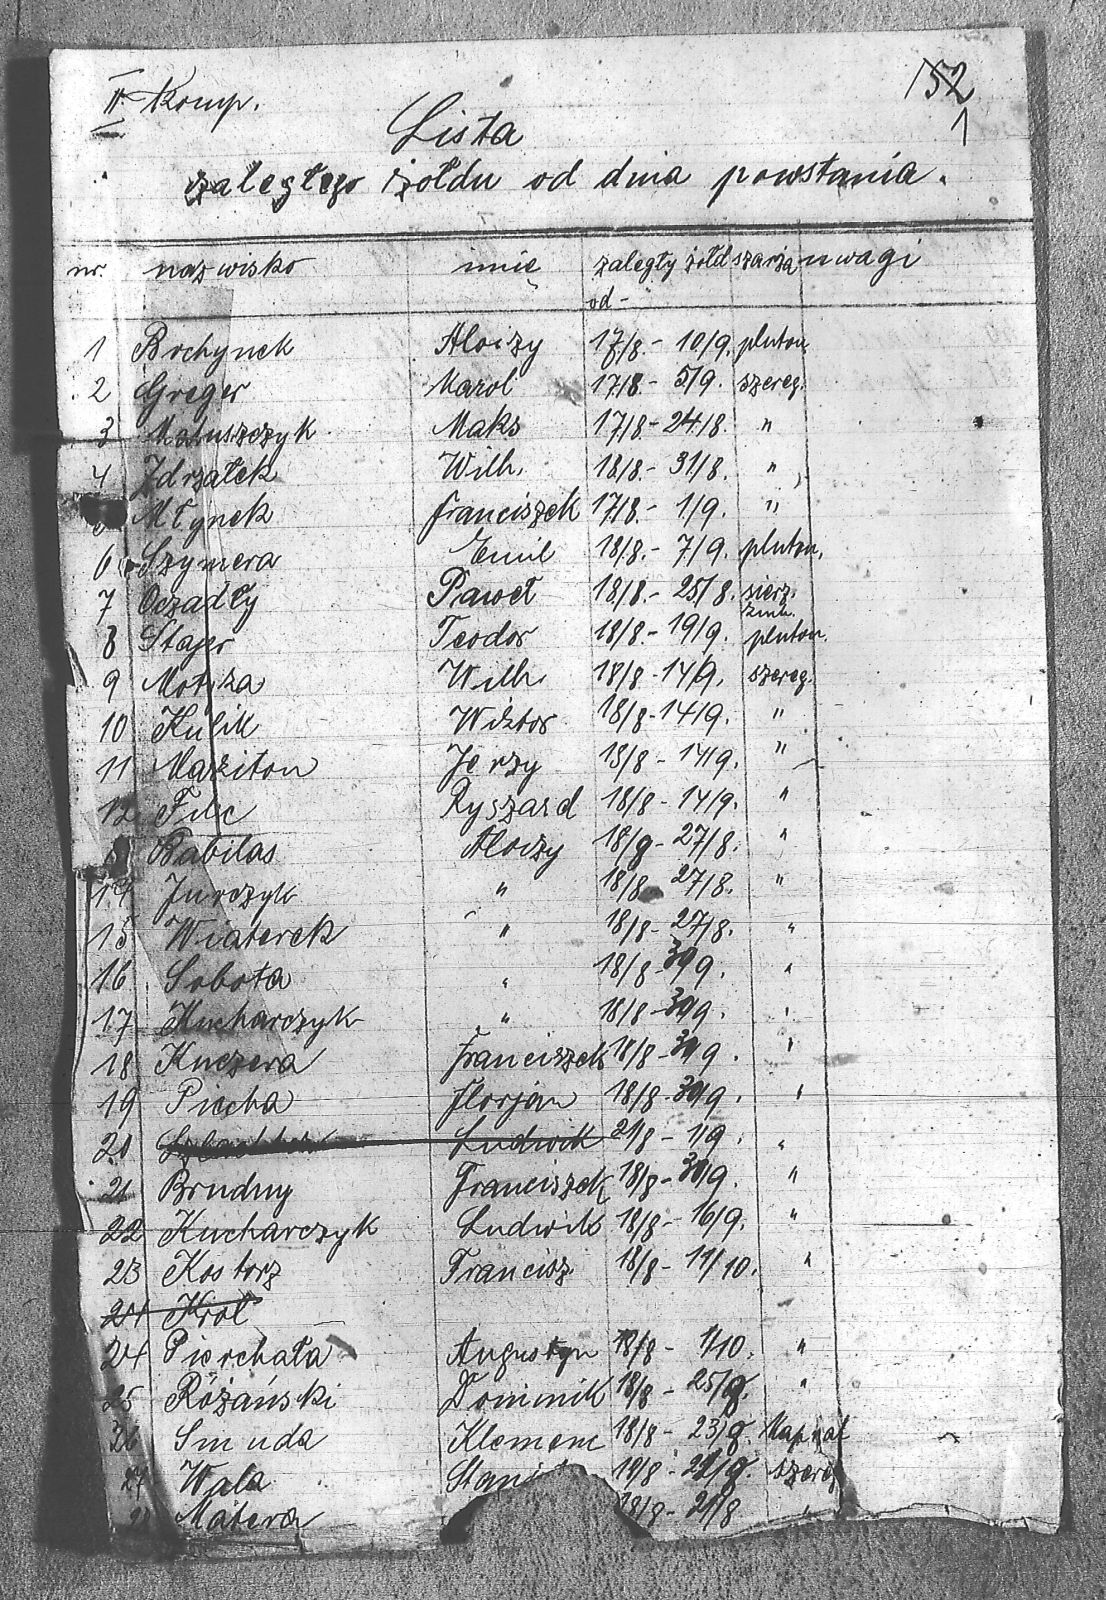 II. Komp.
152
1
Lista
zaległego żołdu od dnia powstania.
nr. nazwisko imię zaległy żołd szarża uwagi
od -
1 Brchynek Aloizy 17/8. - 10/9. pluton.
2 Greger Karol 17/8. - 5/9. szereg.
3 Matuszczyk Maks 17/8. - 24/8. "
4 Zdrzałek Wilh. 18/8. - 31/8. "
5 Młynek Franciszek 17/8. - 1/9. "
6 Szymera Emil 18/8. - 7/9. pluton.
7 Oczadły Paweł 18/8. - 25/8. sierz.
8 Stajer Teodor 18/8. - 19/9. pluton.
9 Motyka Wilh. 18/8 - 14/9. szereg.
10 Kulik Wiktor 18/8 - 14/9. "
11 Masziton Jerzy 18/8 - 14/9. "
12 Filc Ryszard 18/8 - 14/9. "
Babilas Aloizy 18/8 - 27/8. "
14 Jurczyk " 18/8 27/8. "
15 Wiaterek " 18/8 - 27/8. "
16 Sobota " 18/8 - 9. "
17 Kucharczyk " 18/8 - 9. "
18 Kuczera Franciszek 18/8 - 9. "
19 Piecha Florjan 18/8 - 9. "
20 Ludwik 21/8 - 1/9. "
21 Brudny Franciszek 18/8 - 9. "
22 Kucharczyk Ludwik 18/8 - 16/9. "
23 Kostorz Francisz. 18/8 - 11/10. "
24 Król
24 Pierchała Augustyn 18/8 - 1/10. "
25 Różański Dominik 18/8 - 25/9. "
26 Smuda Klemens 18/8 - 23/9. Kapral
27 Wala Stani 19/8 - szereg
28 Matera 18/8 - 21/8 "